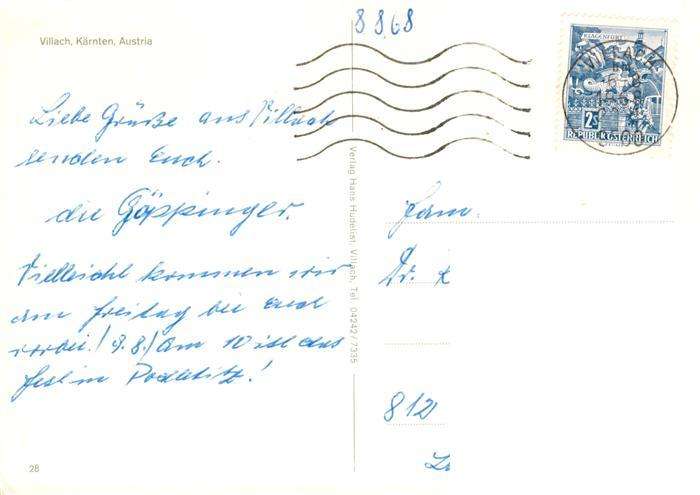 8 8.68
Villach, Kärnten, Austria
KLAGENFURT
VILLACH
2S
REPUBLIK ÖSTERREICH
Liebe Grüße aus Villach
senden Euch.
die Göppinger.
Vielleicht kommen wir
am Freitag bei Euch
vorbei! 9.8.! Am 10 ist das
Fest in
Verlag Hans Hudelist, Villach, Tel. 04242/7335
Fam.
Dr.
812
28